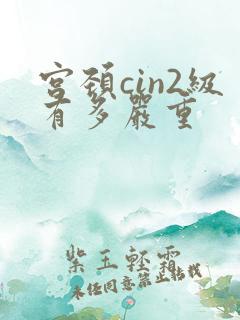 宫颈cin2級
有多嚴重
紫玉輕霜
未经同意禁止转载